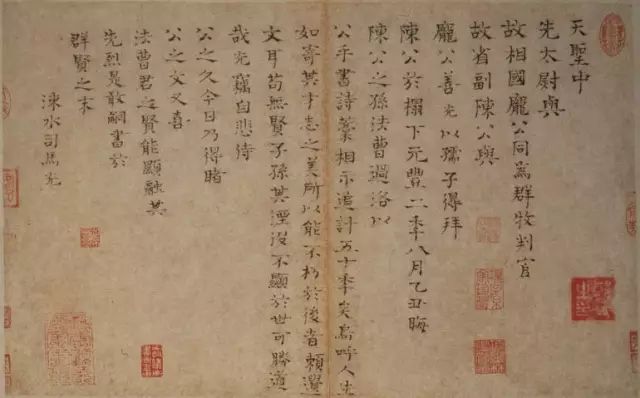 天聖中
先太尉與
故相國龐公同為群牧判官
故省副陳公與
龐公善光以孺子得拜
陳公於榻下元豐二年八月乙丑晦
陳公之孫法曹過洛以
公手書詩藁相示追計五十年矣烏呼人生
如寄其才志之美所以能不朽於後者賴遺
文耳苟無賢子孫其湮沒不顯於世可勝道
哉光竊自悲侍
公之久今日乃得睹
公之文又喜
法曹君之賢能顯融其
先烈是敢嗣書於
群賢之末
涑水司馬光